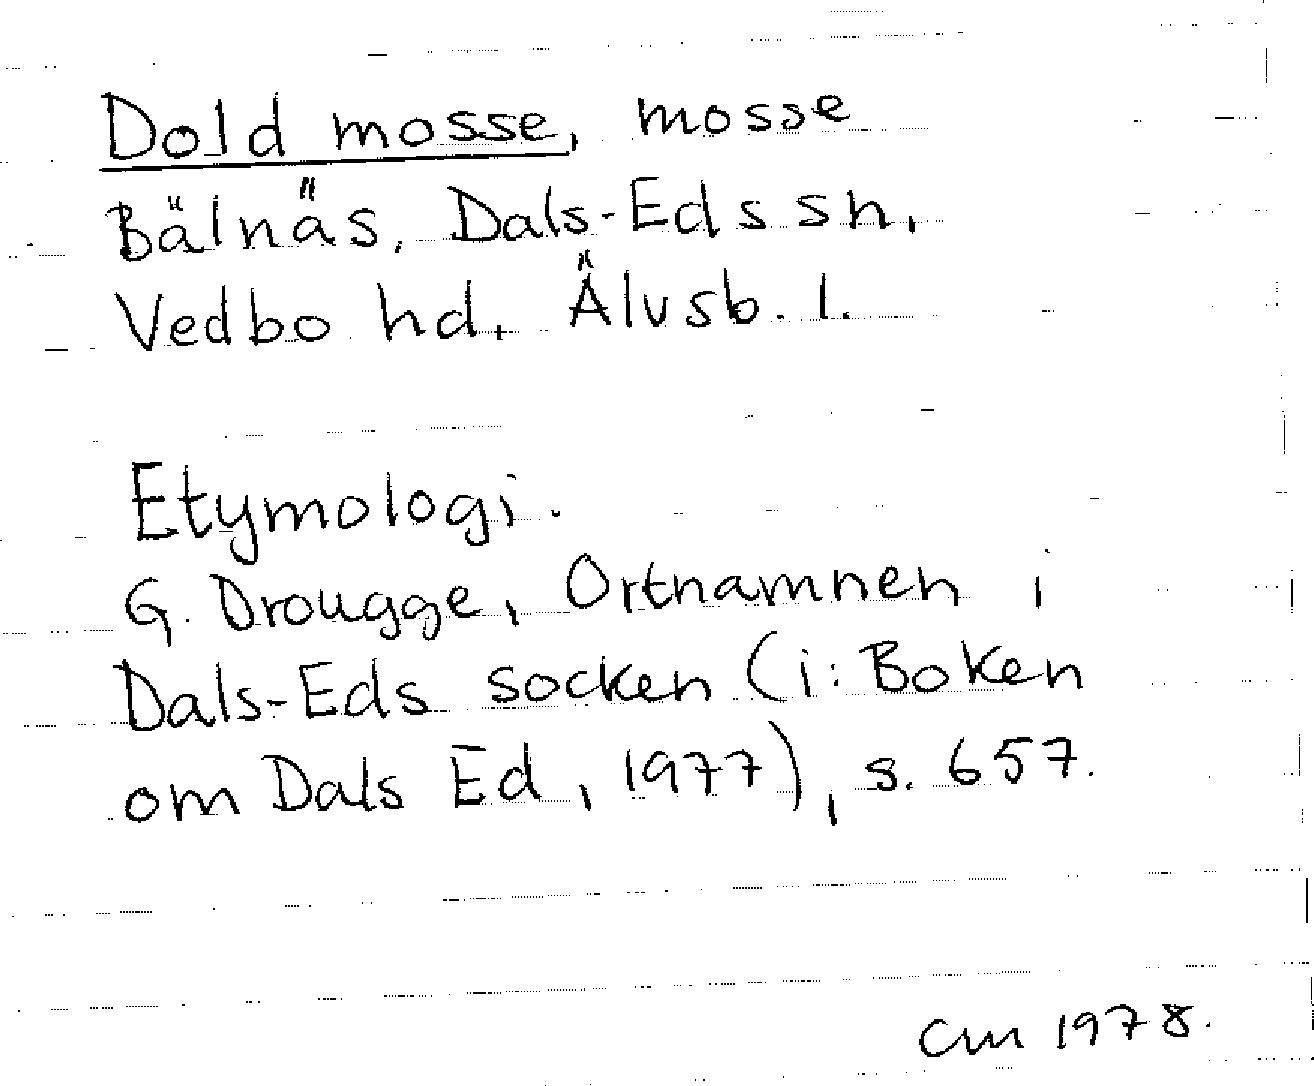 Dold mosse, mosse
Bälnäs, Dals-Eds sn,
Vedbo hd, Älvsb. l.
Etymologi.
G. Drougge, Ortnamnen i
Dals-Eds socken (i: Boken
om Dals Ed, 1977), s. 657.
CM 1978.